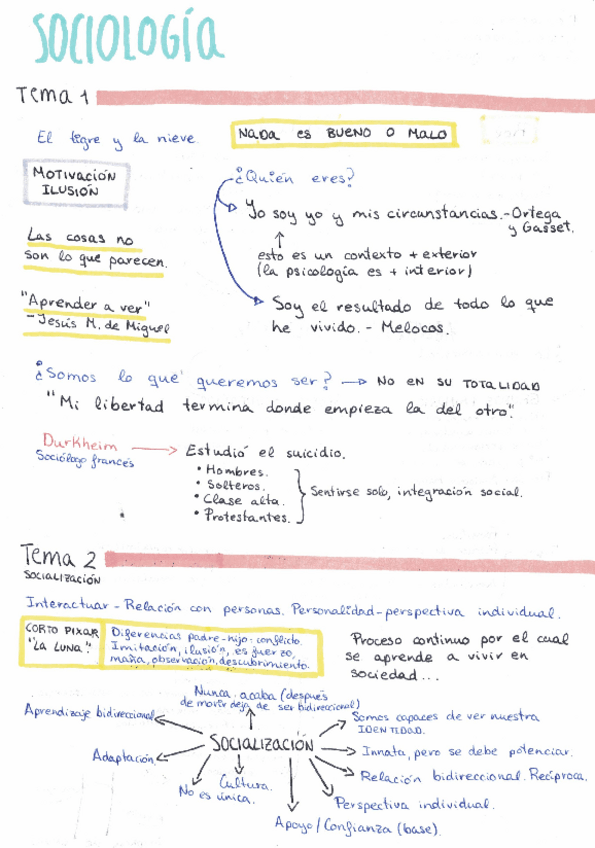 SOCIOLOGÍA
Tema 1
El tigre y la nieve.
NADA ES BUENO O MALO
MOTIVACIÓN
ILUSIÓN
¿Quién eres?
Yo soy yo y mis circunstancias.-Ortega
y Gasset.
esto es un contexto + exterior
(la psicología es + interior)
Las cosas no
son lo que parecen.
"Aprender a ver"
-Jesús M. de Miguel
Soy el resultado de todo lo que
he vivido. - Melocos.
¿Somos lo que queremos ser? → NO EN SU TOTALIDAD
"Mi libertad termina donde empieza la del otro".
Durkheim → Estudió el suicidio.
Sociólogo francés
• Hombres.
• Solteros.
• Clase alta.
• Protestantes.
Sentirse solo, integración social.
Tema 2
SOCIALIZACIÓN
Interactuar - Relación con personas. Personalidad-perspectiva individual.
CORTO PIXAR
"LA LUNA".
Diferencias padre-hijo: conflicto.
Imitación, ilusión, esfuerzo,
maña, observación, descubrimiento.
Proceso continuo por el cual
se aprende a vivir en
sociedad...
Nunca acaba (después
de morir deja de ser bidireccional)
Aprendizaje bidireccional
Somos capaces de ver nuestra
IDENTIDAD.
SOCIALIZACIÓN
Innata, pero se debe potenciar.
Adaptación
Relación bidireccional. Recíproca.
Cultura.
No es única.
Perspectiva individual.
Apoyo/Confianza (base).